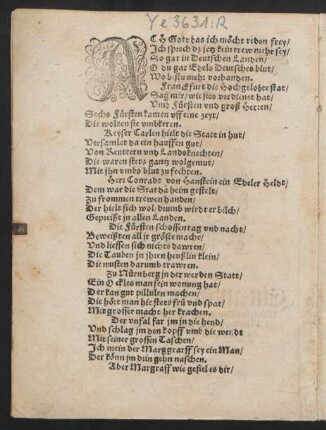 Ye 3631:R
ACH Gott das ich möcht reden frey/
Ich sprech das jetz kein trew mehr sey/
So gar in Deutschen Landen/
O du gar Edels Deutsches blut/
Wo bistu mehr vorhanden.
Franckfurt die Hochgelobte stat/
Sag mir/ wie sies verdienet hat/
Und Fürsten und groß Herren/
Sechs Fürsten kamen uff eine zeyt/
Die wolten sie umbkeren.
Keyser Carlen hielt die Statt in hut/
Versamlet da ein hauffen gut/
Von Reuttern und Landsknechten/
Die waren stets gantz wolgemut/
Mit ihn umbs blut zu fechten.
Herr Conradt von Hanstein ein Edeler Heldt/
Dem war die Stat da heim gestelt/
Zu frommen trewen handen/
Der hielt sich wol/ drumb wirdt er bilch/
Gepreißt in allen Landen.
Die Fürsten schossen tag und nacht/
Beweißten all jr grösse macht/
Und liessen sich nichts dawren/
Die Tauben in jhren heußlin klein/
Die musten darumb trawren.
Zu Nürnberg in der werden Statt/
Ein Ockles man sein wonung hat/
Der kan gut pillulen machen/
Die hört man hie stets frü und spat/
Mit grosser macht her krachen.
Der unfal far jm in die hend/
Und schlag jm den kopff umb die wendt
Mit seiner grossen Taschen/
Ich mein der Marggraff sey ein Man/
Der könn jm dün gehn naschen.
Aber Margraff wie gefiel es dir/